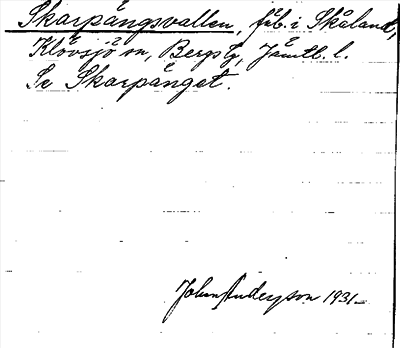 Skarpångsvallen, fäb. i Skåland,
Klövsjö sn, Bergs tg, Jämtl. l.
Se Skarpånget.
John Anderson 1931